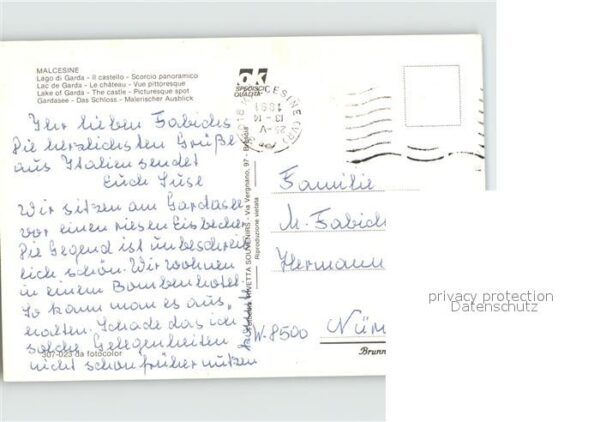 MALCESINE
Lago di Garda - Il castello - Scorcio panoramico
Lac de Garda - Le château - Vue pittoresque
Lake of Garda - The castle - Picturesque spot
Gardasee - Das Schloss - Malerischer Ausblick
ok
SPEDISCI
QUALITÀ
Ihr lieben Fabichs
Die herzlichsten Grüße
aus Italien sendet
Euch Suse
Wir sitzen am Gardasee
vor einen riesen Eisbecher
Die Gegend ist unbeschreib
lich schön. Wir wohnen
in einem Bombenhotel.
So kann man es aus,
halten. Schade das ich
solche Gelegenheiten
nicht schon früher nutzen
307-023 da fotocolor
RIVETTA SOUVENIRS - Via Vergnano, 97 - Brescia
Riproduzione vietata
25-V
13-14
1991
Familie
M. Fabich
Hermann
W-8500 Nürn
Brunn
privacy protection
Datenschutz